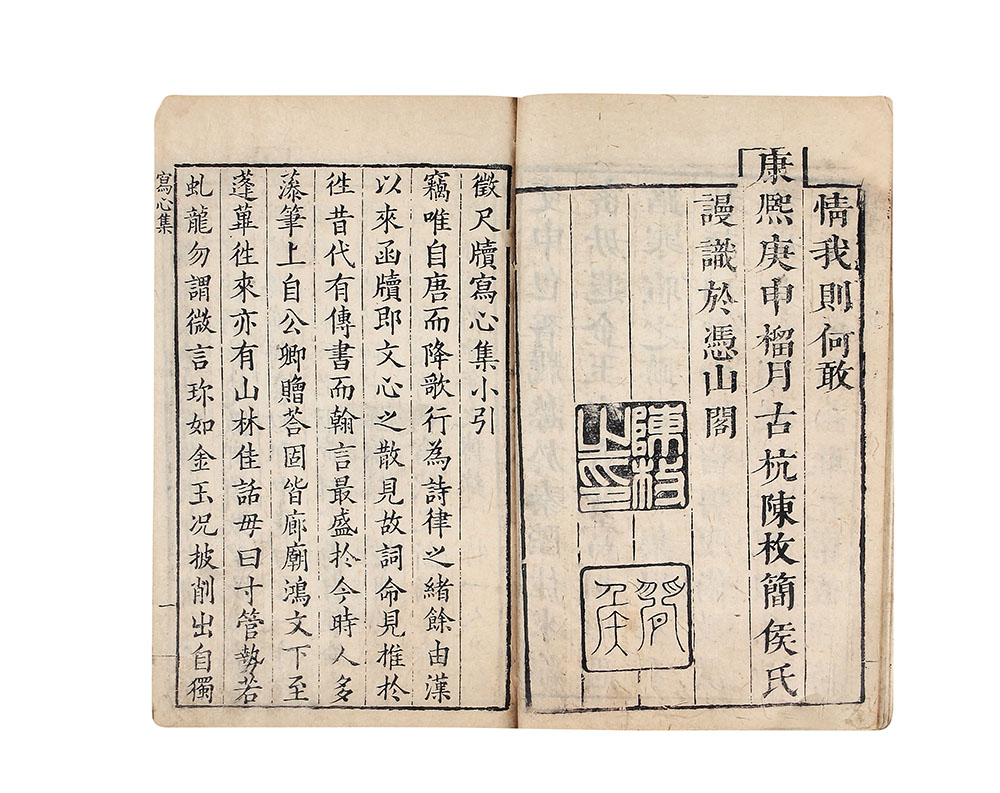 情我則何敢
康熙庚申橊月古杭陳枚簡侯氏
謾識於憑山閣
陳枚之印
簡侯
徵尺牘寫心集小引
竊唯自唐而降歌行為詩律之緒餘由漢
以來函牘即文心之散見故詞命見推於
徃昔代有傳書而翰言最盛於今時人多
㴃筆上自公卿贈荅固皆廊廟鴻文下至
蓬蓽徃來亦有山林佳話毋曰寸管勢若
虬龍勿謂微言珎如金玉况披削出自獨
寫心集
一